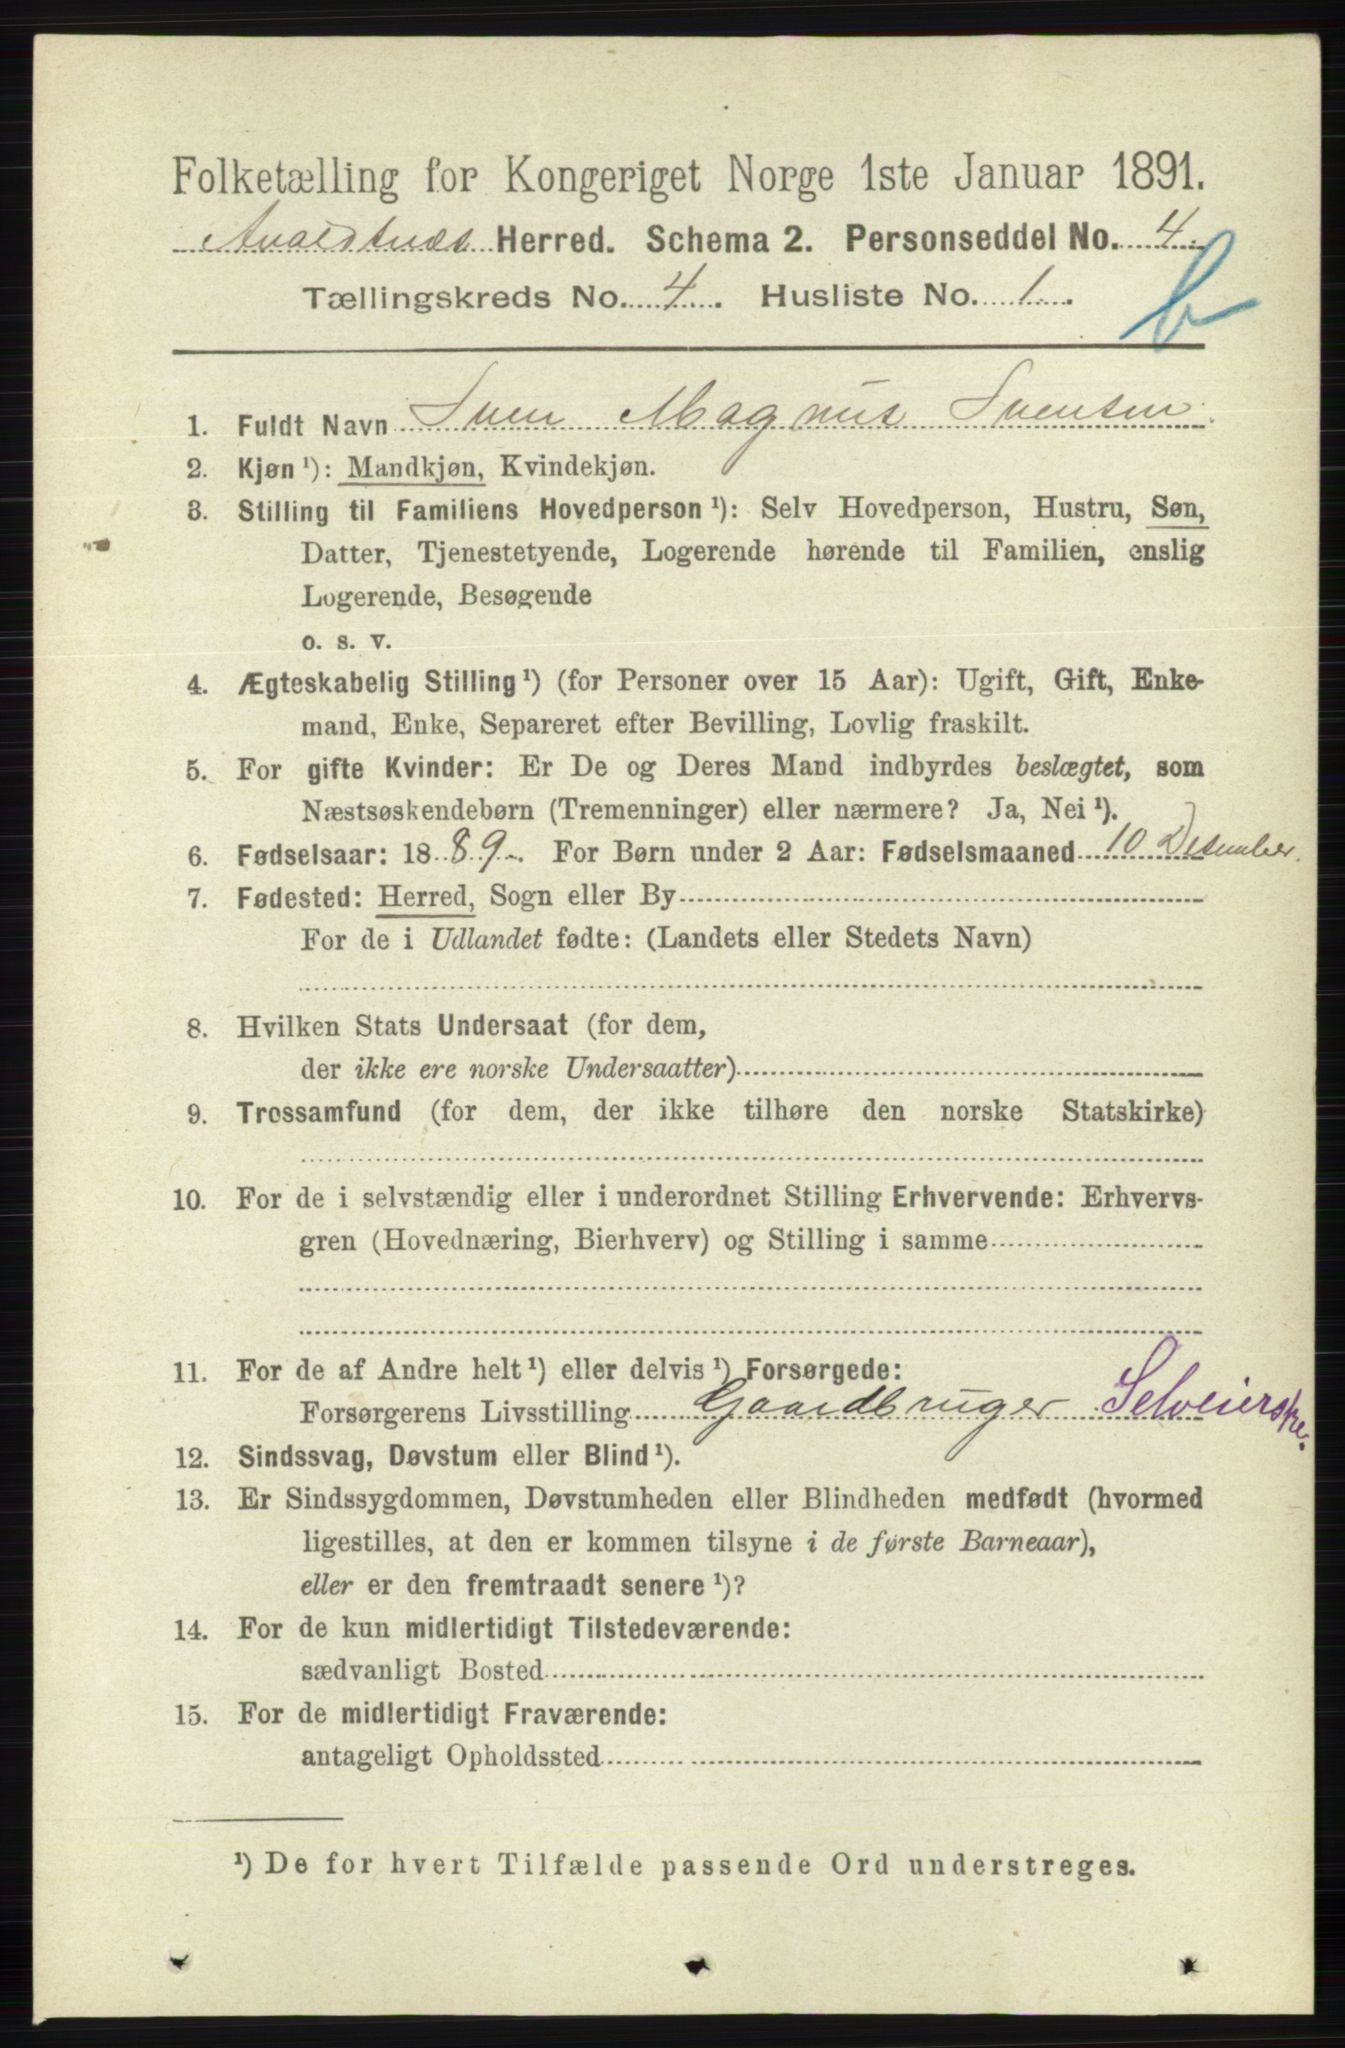 Folketælling for Kongeriget Norge 1ste Januar 1891.
Avaldsnæs Herred. Schema 2. Personseddel No. 4.
Tællingskreds No. 4. Husliste No. 1.
b
1. Fuldt Navn Sven Magnus Svensen
2. Kjøn¹): Mandkjøn, Kvindekjøn.
3. Stilling til Familiens Hovedperson¹): Selv Hovedperson, Hustru, Søn,
Datter, Tjenestetyende, Logerende hørende til Familien, enslig
Logerende, Besøgende
o. s. v.
4. Ægteskabelig Stilling¹) (for Personer over 15 Aar): Ugift, Gift, Enke-
mand, Enke, Separeret efter Bevilling, Lovlig fraskilt.
5. For gifte Kvinder: Er De og Deres Mand indbyrdes beslægtet, som
Næstsøskendebørn (Tremenninger) eller nærmere? Ja, Nei¹).
6. Fødselsaar: 1889. For Børn under 2 Aar: Fødselsmaaned 10 Desember.
7. Fødested: Herred, Sogn eller By
For de i Udlandet fødte: (Landets eller Stedets Navn)
8. Hvilken Stats Undersaat (for dem,
der ikke ere norske Undersaatter)
9. Trossamfund (for dem, der ikke tilhøre den norske Statskirke)
10. For de i selvstændig eller i underordnet Stilling Erhvervende: Erhvervs-
gren (Hovednæring, Bierhverv) og Stilling i samme
11. For de af Andre helt¹) eller delvis¹) Forsørgede:
Forsørgerens Livsstilling Gaardbruger Selveierske.
12. Sindssvag, Døvstum eller Blind¹).
13. Er Sindssygdommen, Døvstumheden eller Blindheden medfødt (hvormed
ligestilles, at den er kommen tilsyne i de første Barneaar),
eller er den fremtraadt senere¹)?
14. For de kun midlertidigt Tilstedeværende:
sædvanligt Bosted
15. For de midlertidigt Fraværende:
antageligt Opholdssted
¹) De for hvert Tilfælde passende Ord understreges.